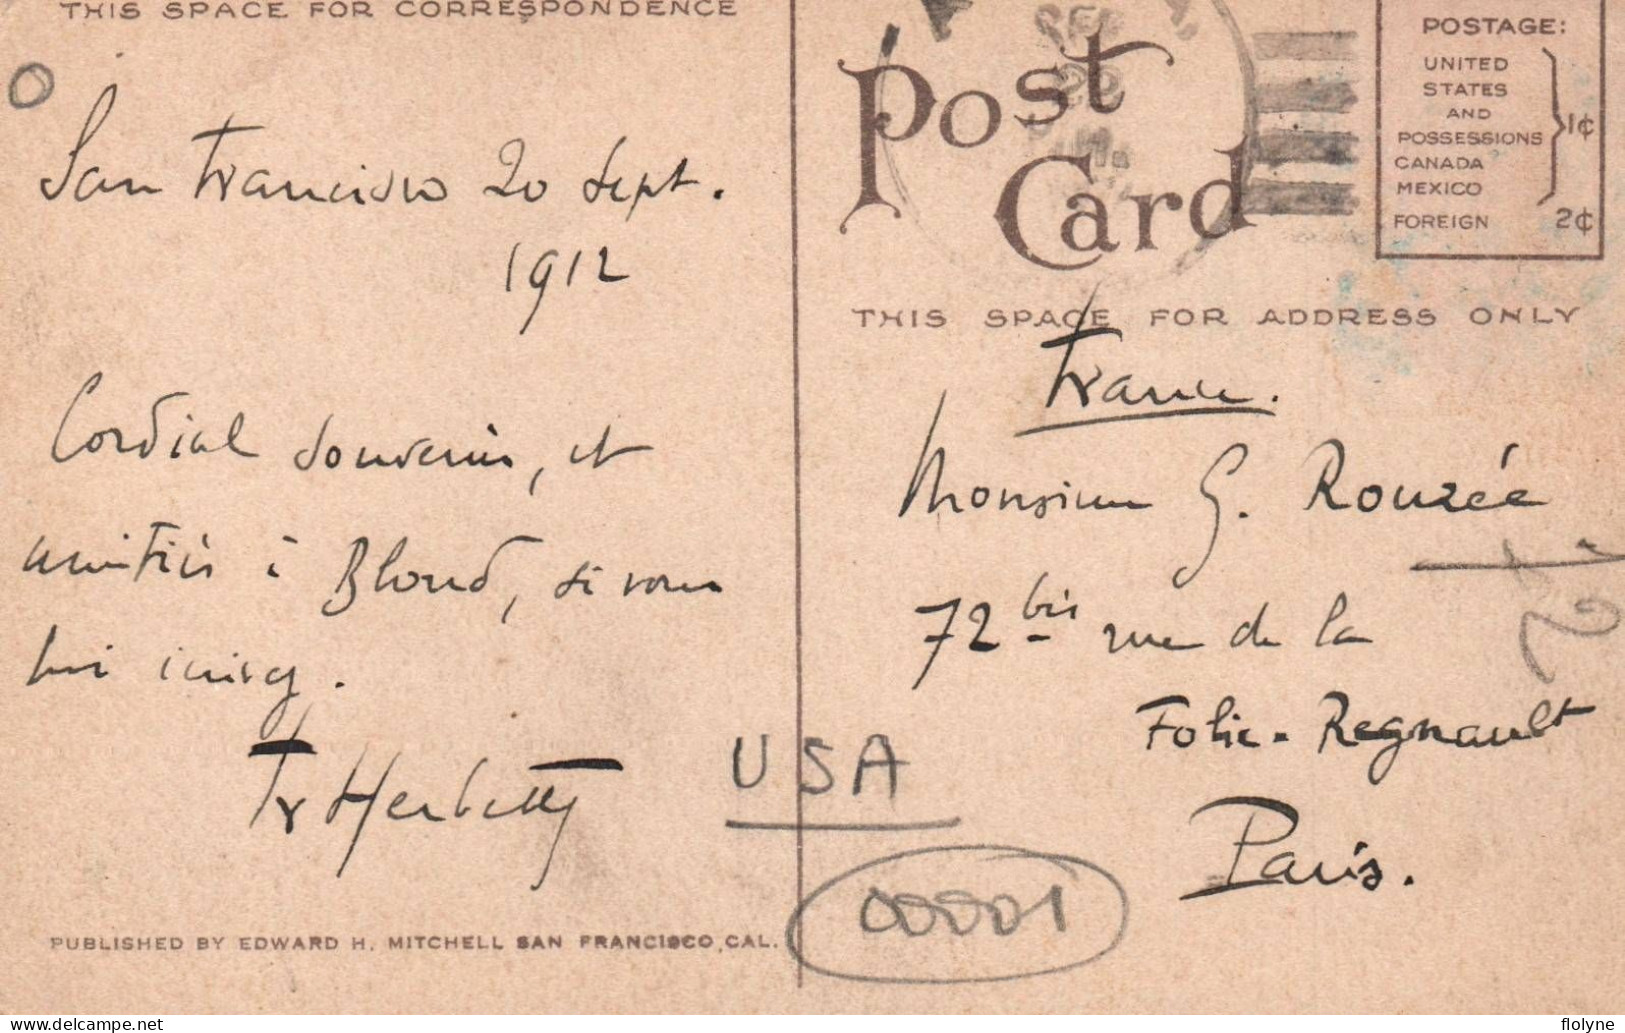 THIS SPACE FOR CORRESPONDENCE
San Francisco 20 Sept.
1912
Cordial souvenir, et
amitiés à Blond, si vous
lui écrivez.
Fr Herbette
PUBLISHED BY EDWARD H. MITCHELL SAN FRANCISCO, CAL.
Post
Card
POSTAGE:
UNITED
STATES
AND
POSSESSIONS 1¢
CANADA
MEXICO
FOREIGN 2¢
THIS SPACE FOR ADDRESS ONLY
France.
Monsieur G. Rouzée
72 bis rue de la
Folie-Regnault
Paris.
USA
00001
flolyne